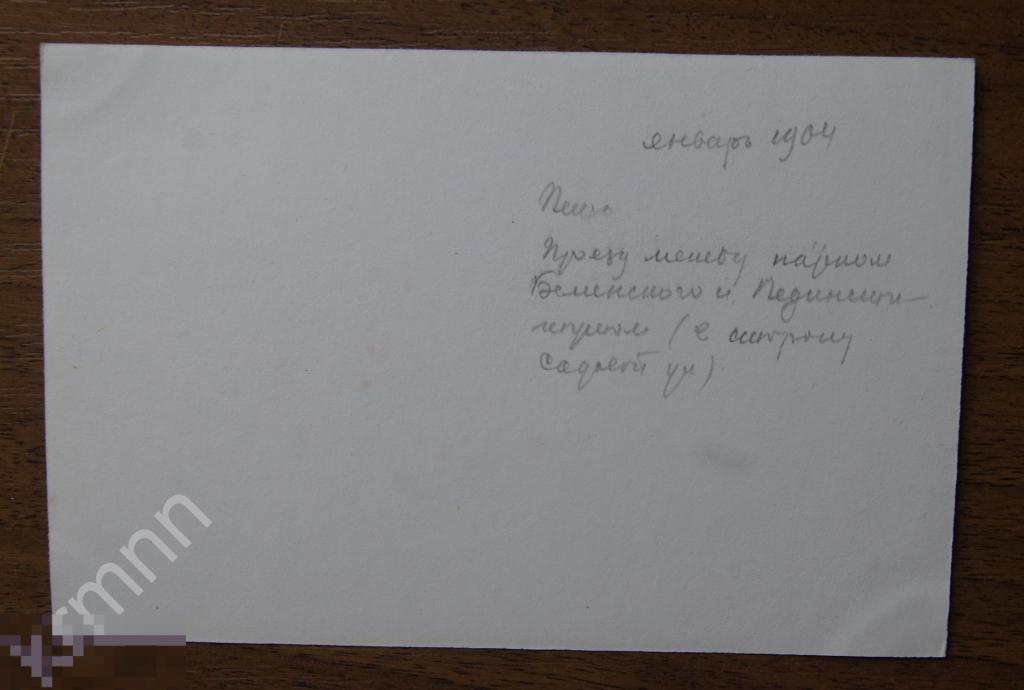 январь 1904
Пенза
Проезд между парком
Белинского и Пединсти-
тутом (с сторону
Садовой ул)
rmnn